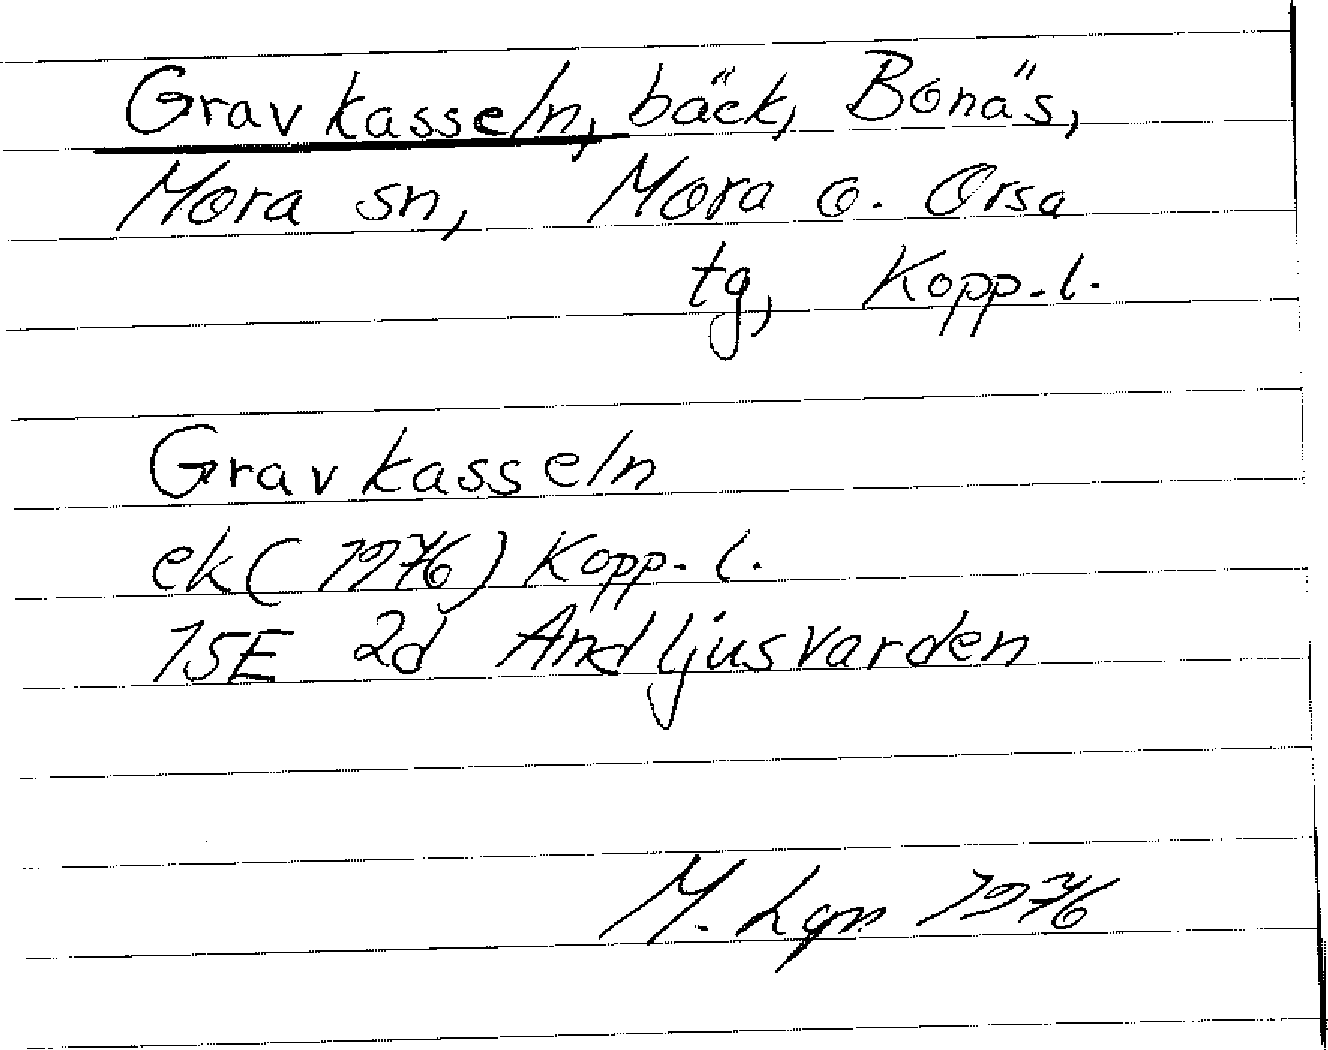 Gravkasseln, bäck, Bonäs,
Mora sn, Mora o. Orsa
tg, Kopp.l.
Gravkasseln
ek (1976) Kopp. l.
15E 2d Andljusvarden
M. Lgn 1976